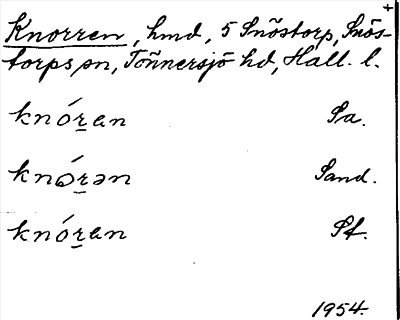 Knorren, hmd, 5 Snöstorp, Snös-
torps sn, Tönnersjö hd, Hall. l.
knóṟan Sa.
knóṟən Sand.
knóṟan St.
1954.